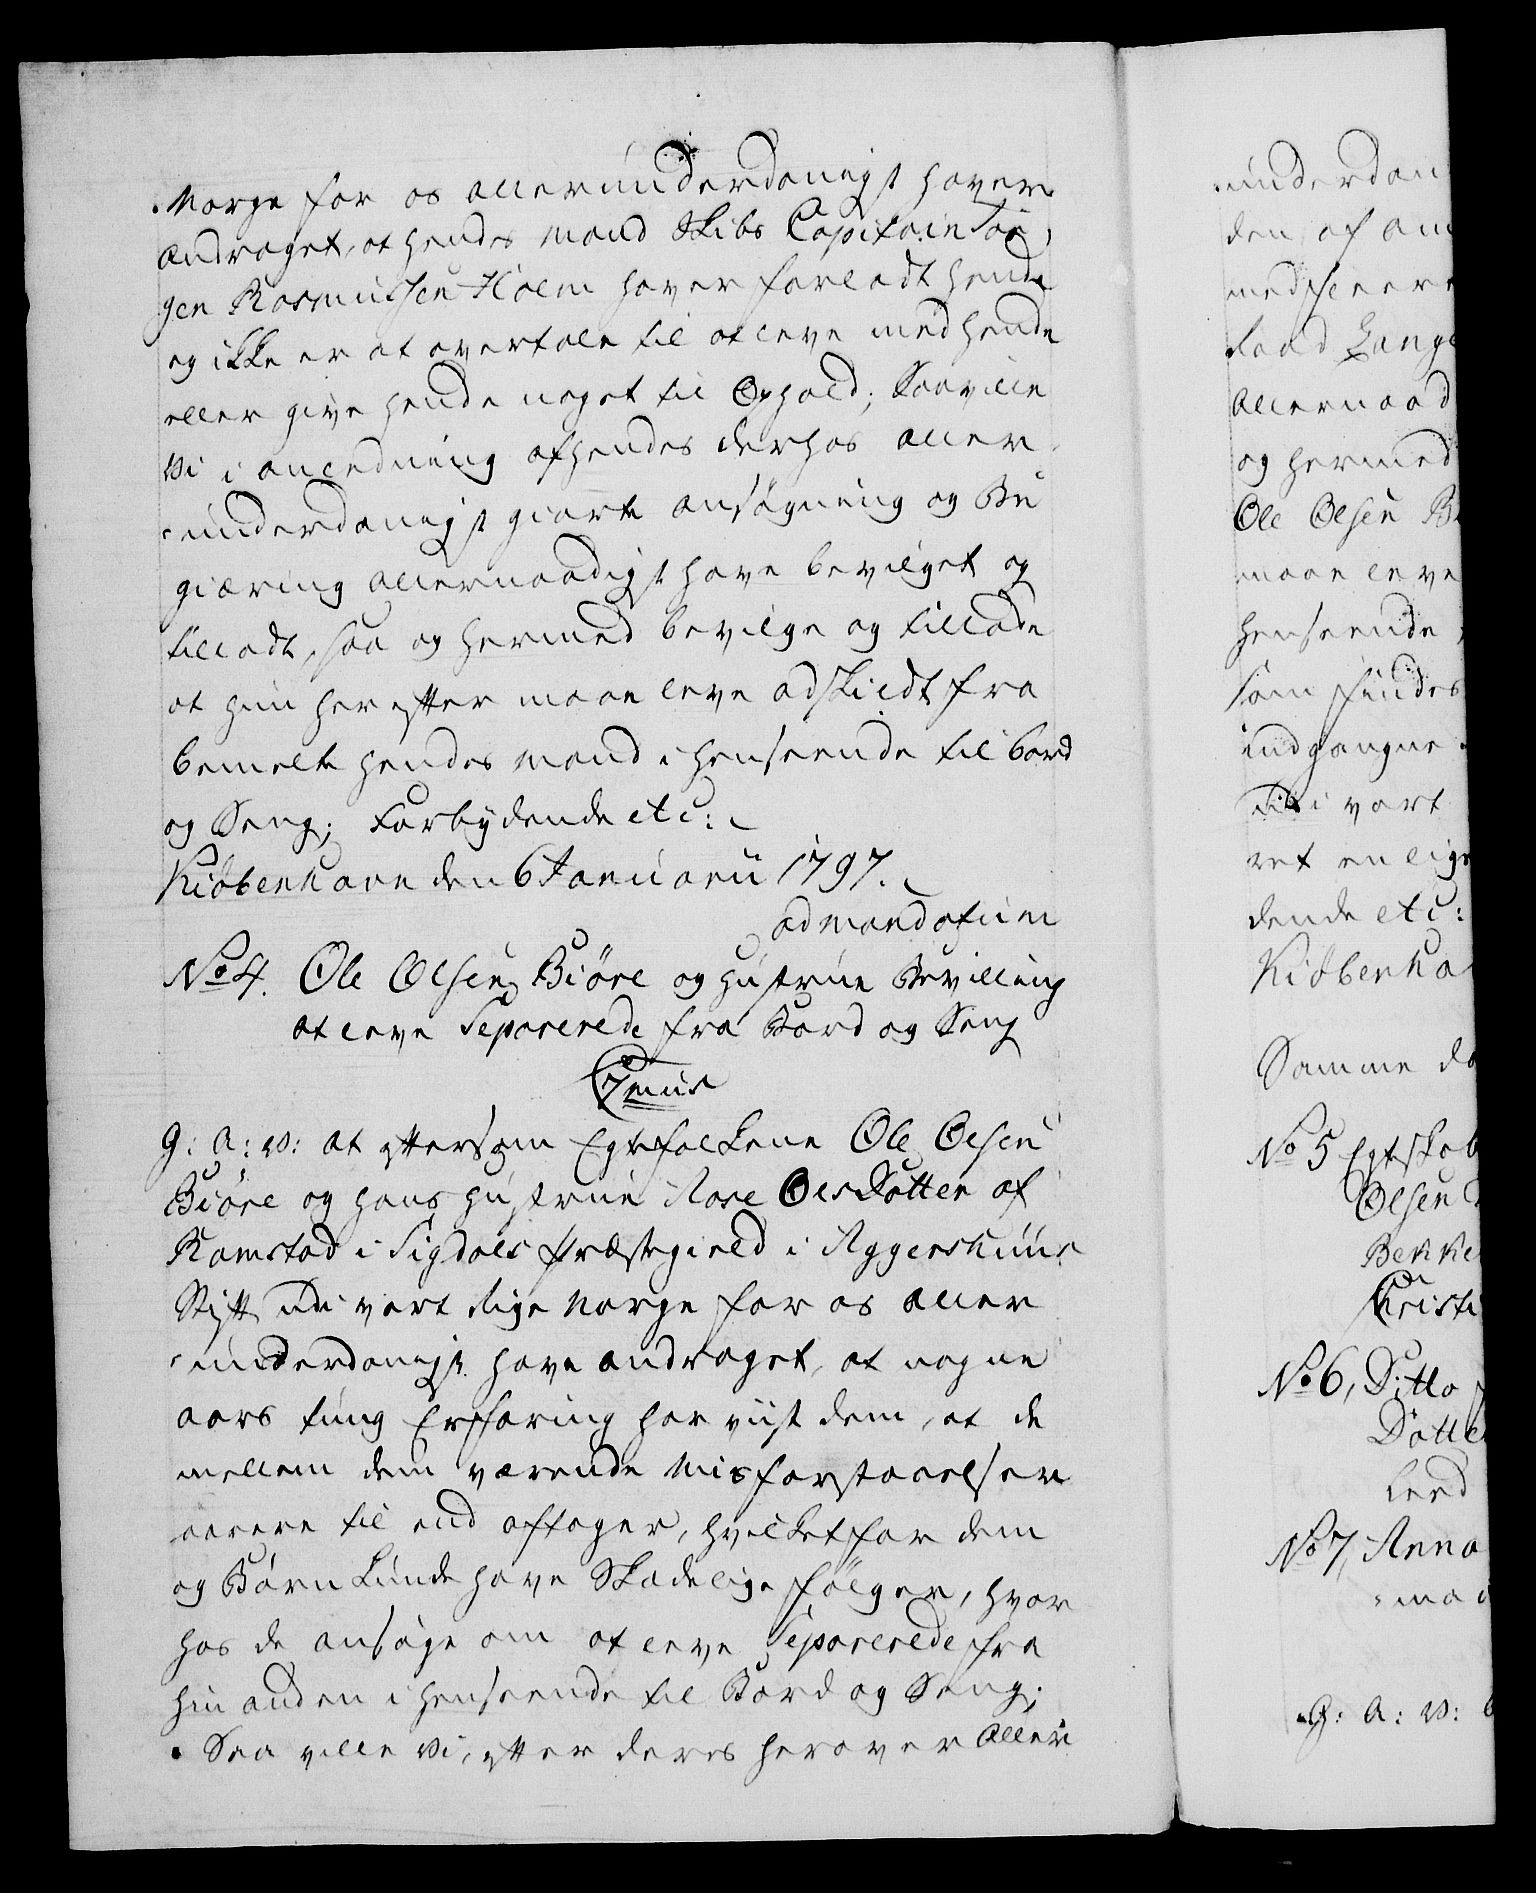 Norge for os allerunderdanigst haver
andraget, at hendes Mand Skibs Capitain Jør,
gen Rasmussen Holm haver forladt hende
og ikke er at overtale til at leve med hende
eller give hende noget til Ophold; Saa ville
Vi i anledning af hendes derhos aller
underdanigst giorte ansøgning og Be
giæring allernaadigst have bevilget og
tilladt, saa og hermed bevilge og tillade
at hun herefter maae leve adskildt fra
bemelte hendes Mand i henseende til bord
og Seng; Forbydende etc:
Kiøbenhavn den 6 Januarii 1797.
ad mandatum
No 4. Ole Olsen Biøre og hustrue Bevilling
at leve Separerede fra Bord og Seng
C 7mus
G: A: V: at eftersom Egtefolkene Ole Olsen
Biøre og hans hustrue Aase OlsDatter af
Ramstad i Sigdals Præstegield i Aggershuus
Stift udi vort Rige Norge for os aller
underdanigst have andraget, at nogne
aars tung Erfaring har viist dem, at de
mellem dem værende Misforstaaelser
meere til end aftager, hvilket for dem
og Børn kunde have Skadelige følger, hvor
hos de ansøge om at leve Separerede fra
hin anden i henseende til Bord og Seng;
Saa ville Vi, efter deres herover Aller
underdan
den af am
med fleere
raad Lange
Allernaad
og hermed
Ole Olsen B
maae leve
henseende
som findes
indgangne
udi vort
ret en lige
dende etc:
Kiøbenha
Samme da
No 5 Egtskab
Olsen
Bekke
Christi
No 6, Ditto
Datte
Leed
No 7, Anna
ma
G: A: V: